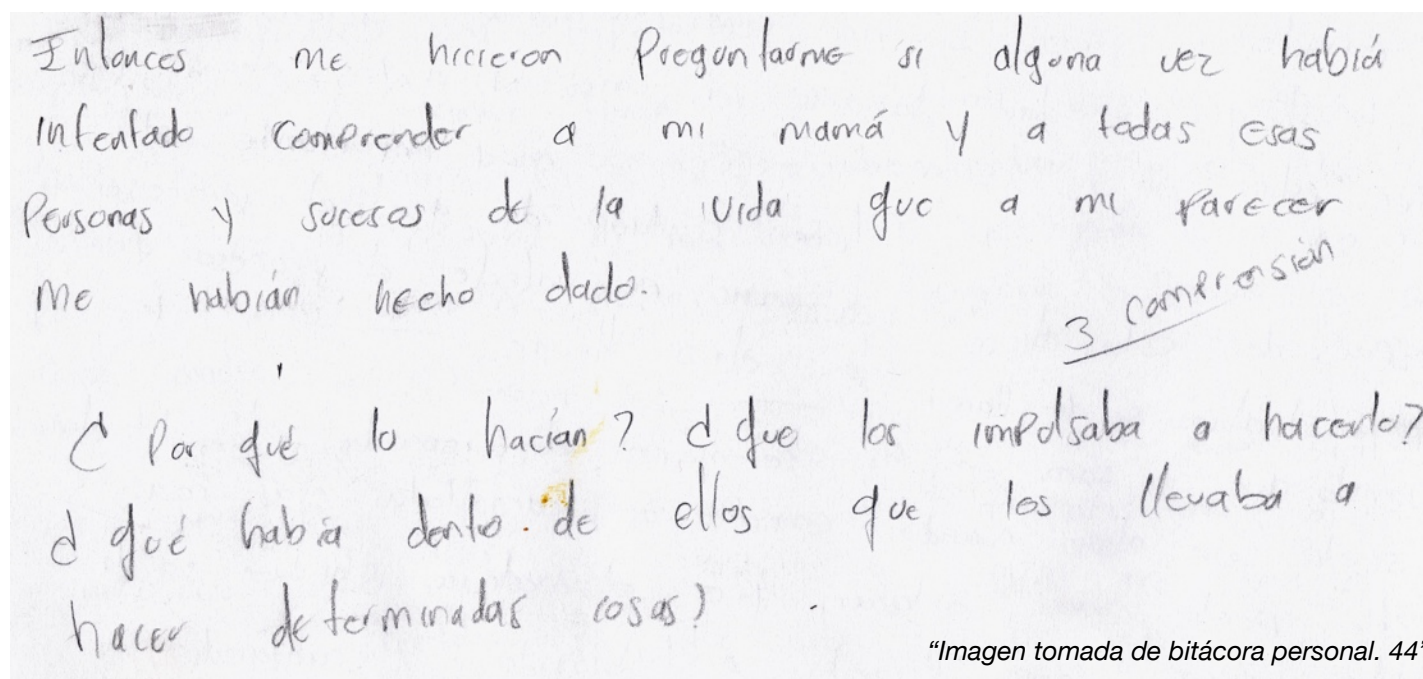 Entonces me hicieron Preguntarme si alguna vez habiá
intentado comprender a mi mamá y a todas esas
Personas y sucesos de la vida que a mi parecer
me habián hecho dado.
3 comprensión
¿Por qué lo hacian? ¿que los impulsaba a hacerlo?
¿qué habia dentro de ellos que los llevaba a
hacer determinadas cosas?
“Imagen tomada de bitácora personal. 44”